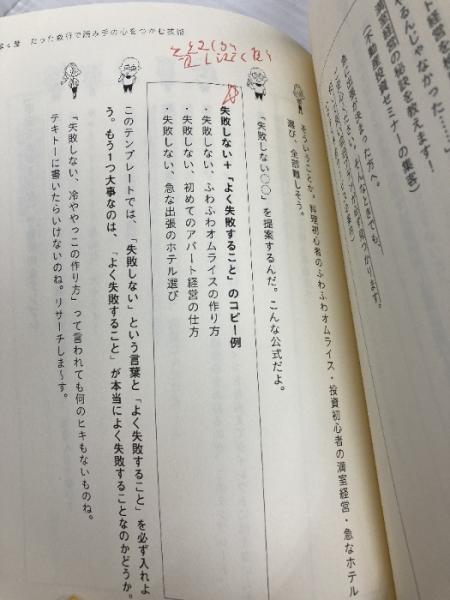 ト経営を検
るんじゃなかった……」
満室経営の秘訣を教えます！
（不動産投資セミナーの集客）
第4章 たった数行で読み手の心をつかむ技術
そういうことか。料理初心者のふわふわオムライス・投資初心者の満室経営・急なホテル
選び、全部難しそう。
「失敗しない○○」を提案するんだ。こんな公式だよ。
失敗しない＋「よく失敗すること」のコピー例
・失敗しない、ふわふわオムライスの作り方
・失敗しない、初めてのアパート経営の仕方
・失敗しない、急な出張のホテル選び
このテンプレートでは、「失敗しない」という言葉と「よく失敗すること」を必ず入れよ
う。もう1つ大事なのは、「よく失敗すること」が本当によく失敗することなのかどうか。
「失敗しない、冷ややっこの作り方」って言われても何のヒキもないものね。
テキトーに書いたらいけないのね。リサーチしま～す。